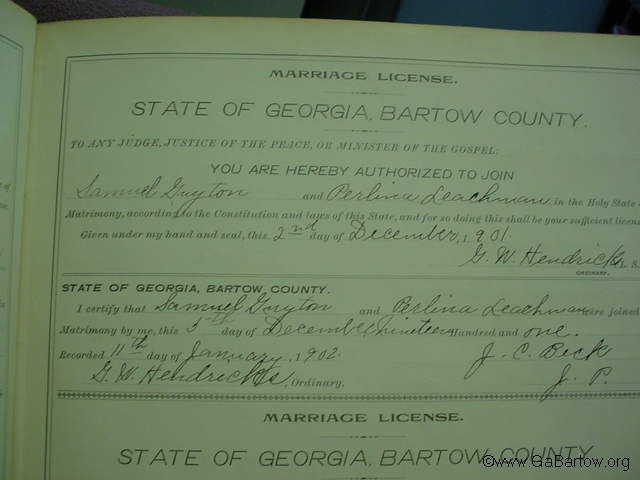 MARRIAGE LICENSE.
STATE OF GEORGIA, BARTOW COUNTY.
TO ANY JUDGE, JUSTICE OF THE PEACE, OR MINISTER OF THE GOSPEL:
YOU ARE HEREBY AUTHORIZED TO JOIN
Samuel Guyton and Perlina Leachman in the Holy State
Matrimony, according to the Constitution and laws of this State, and for so doing this shall be your sufficient licens
Given under my hand and seal, this 2nd day of December, 1901.
G. W. Hendricks L. S.
ORDINARY.
STATE OF GEORGIA, BARTOW COUNTY.
I certify that Samuel Guyton and Perlina Leachman were joined
Matrimony by me, this 5th day of December nineteen Hundred and one.
Recorded 11th day of January, 1902. J. C. Beck
G. W. Hendricks, Ordinary. J. P.
MARRIAGE LICENSE.
STATE OF GEORGIA, BARTOW COUNTY.
©www.GaBartow.org